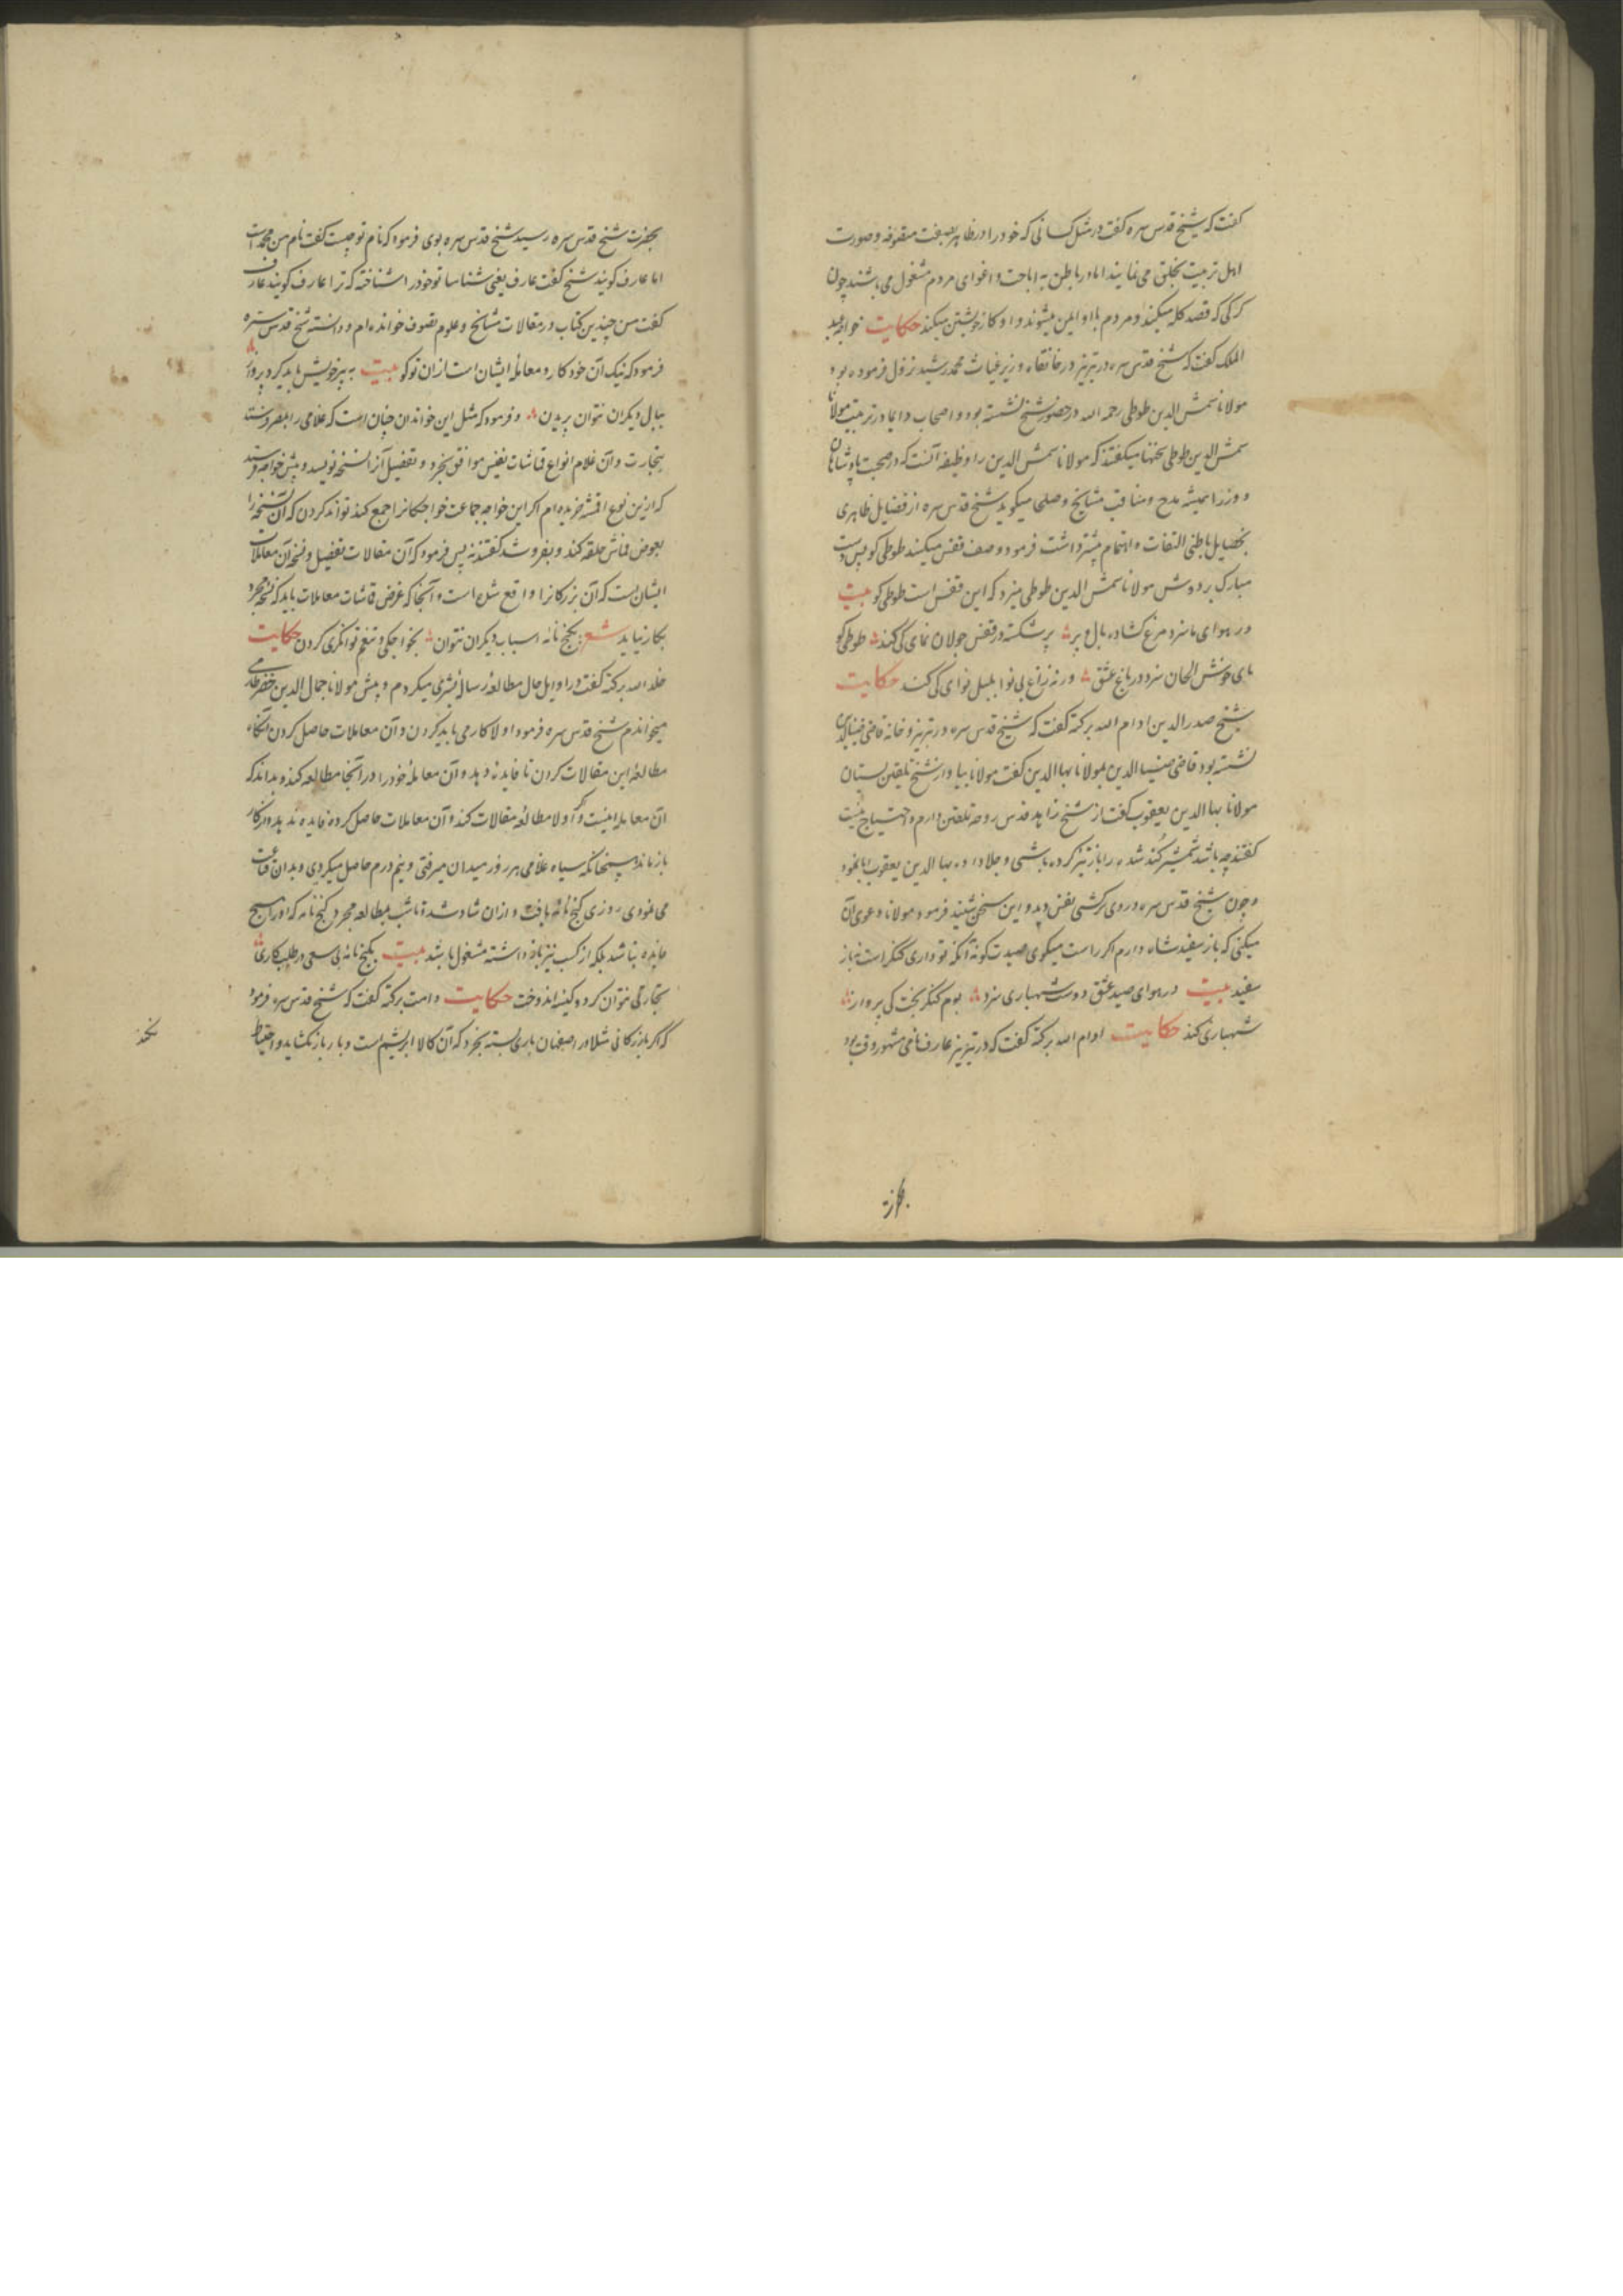 گفت که شیخ قدس سره گفت در مثل کسانی که خود را در ظاهر بصفت متصوفه و صورت
اهل تربیت بخلق می نمایند اما در باطن به اباحت و اغوای مردم مشغول می باشند چون
کرکی که قصد کله میکند و مردم از او ایمن میشوند و او کار خویشتن میکند حکایت خواجه
الملک گفت که شیخ قدس سره در تبریز در خانقاه وزیر غیاث محمد رشید نزول فرموده بود
مولانا شمس الدین طوطی رحمه الله در حضور شیخ نشسته بود و اصحاب دایما در تربیت مولانا
شمس الدین طوطی سخنها میکفتند که مولانا شمس الدین را وظیفه آنست که در صحبت پادشاهان
و وزرا همیشه مدح و مناقب مشایخ و صلحا میکوید شیخ قدس سره از فضایل ظاهری
بخصایل باطنی التفات و اهتمام بیشتر داشت فرمود وصف قفس میکنند طوطی کو پس دست
مبارک بر دوش مولانا شمس الدین طوطی میزد که این قفس است طوطی کو بیت
در هوای ما سزد مرغ کشاده بال و پر پر شکسته در قفس جولان نمای کی کند طوطی کو
بای خوش الحان سزد در باغ عشق ورنه زاغ بی نوا بلبل نوای کی کند حکایت
شیخ صدر الدین ادام الله برکته گفت که شیخ قدس سره در تبریز و خانه قاضی ضیاالدین
نشسته بود قاضی ضیا الدین بمولانا بها الدین کفت مولانا بیا و از شیخ تلقین بستان
مولانا بها الدین یعقوب کفت از شیخ زاهد قدس روحه تلقین دارم و احتیاج نیست
کفتند چه باشد شمشیر کُند شده را باز تیز کرده باشی و جلا داده بها الدین یعقوب ابا نمود
و چون شیخ قدس سره در وی سرکشی نفس دید و این سخن شنید فرمود مولانا دعوی آن
میکنی که باز سفید شاه دارم اکر راست میکوی صیدت کو نه آنکه تو داری کنکر است نه باز
سفید بیت در هوای صید عشق دوست شهبازی سزد بوم کنکر بخت کی پرواز
شهبازی کند حکایت ادام الله برکته گفت که در تبریز عارف نامی مشهور وقت بود
بحضرت شیخ قدس سره رسید شیخ قدس سره بوی فرمود که نام تو چیست کفت نام من محمد است
اما عارف کویند شیخ کفت عارف یعنی شناسا تو خود را شناخته که ترا عارف کویند عارف
کفت من چندین کتاب در مقالات مشایخ و علوم تصوف خوانده ام و دانسته شیخ قدس سره
فرمود که نیک آن خود کار و معامله ایشان است از ان تو کو بیت به پر خویش باید کرد پرواز
ببال دیکران نتوان پریدن و فرمود که مثل این خواندن چنان است که غلامی را بمصر فرستند
بتجارت و آن غلام انواع قماشات نفیس موافق بخرد و تفصیل آنرا نسخه نویسد و پیش خواجه فرستد
که ازین نوع اقمشه خریده ام اکر این خواجه جماعت خواجکانرا جمع کند تواند کردن که آن نسخه را
بعوض قماش حلقه کند و بفروشد کفتند نه پس فرمود که آن مقالات تفصیل و نسخه آن معاملات
ایشان است که آن بزرکانرا واقع شده است و آنجا که غرض قماشات معاملات باید که نسخه مجرد
بکار نیاید شعر بکنج نامه اسباب دیکران نتوان بخواجکی و تنعم توانکری کردن حکایت
خلد الله برکته کفت در اوایل حال مطالعه رساله قشیری میکردم و پیش مولانا جمال الدین
میخواندم شیخ قدس سره فرمود اولا کار می باید کردن و آن معاملات حاصل کردن آنکاه
مطالعه این مقالات کردن تا فایده دهد و آن معامله خود را در آنجا مطالعه کند و بداند که
آن معامله اینست و اکر اولا مطالعه مقالات کند و آن معاملات حاصل کرده فایده ندهد و از کار
باز ماند همچنانکه سیاه غلامی هر روز میدان میرفتی و نیم درم حاصل میکردی و بدان قناعت
می نمودی روزی کنج نامه یافت و از ان شاد شد تا شب بمطالعه مجرد کنج نامه که او را هیچ
فایده نباشد بلکه از کسب نیز باز داشته مشغول باشد بیت بکنج نامه بی سعی در طلب کاری
تجارتی نتوان کرد و کیسه اندوخت حکایت دامت برکته کفت که شیخ قدس سره فرمود
که اکر بازرکانی مثلا در اصفهان باری بسته بخرد که آن کالا ابریشم است و بار باز نکشاید و احتیاط
نکند